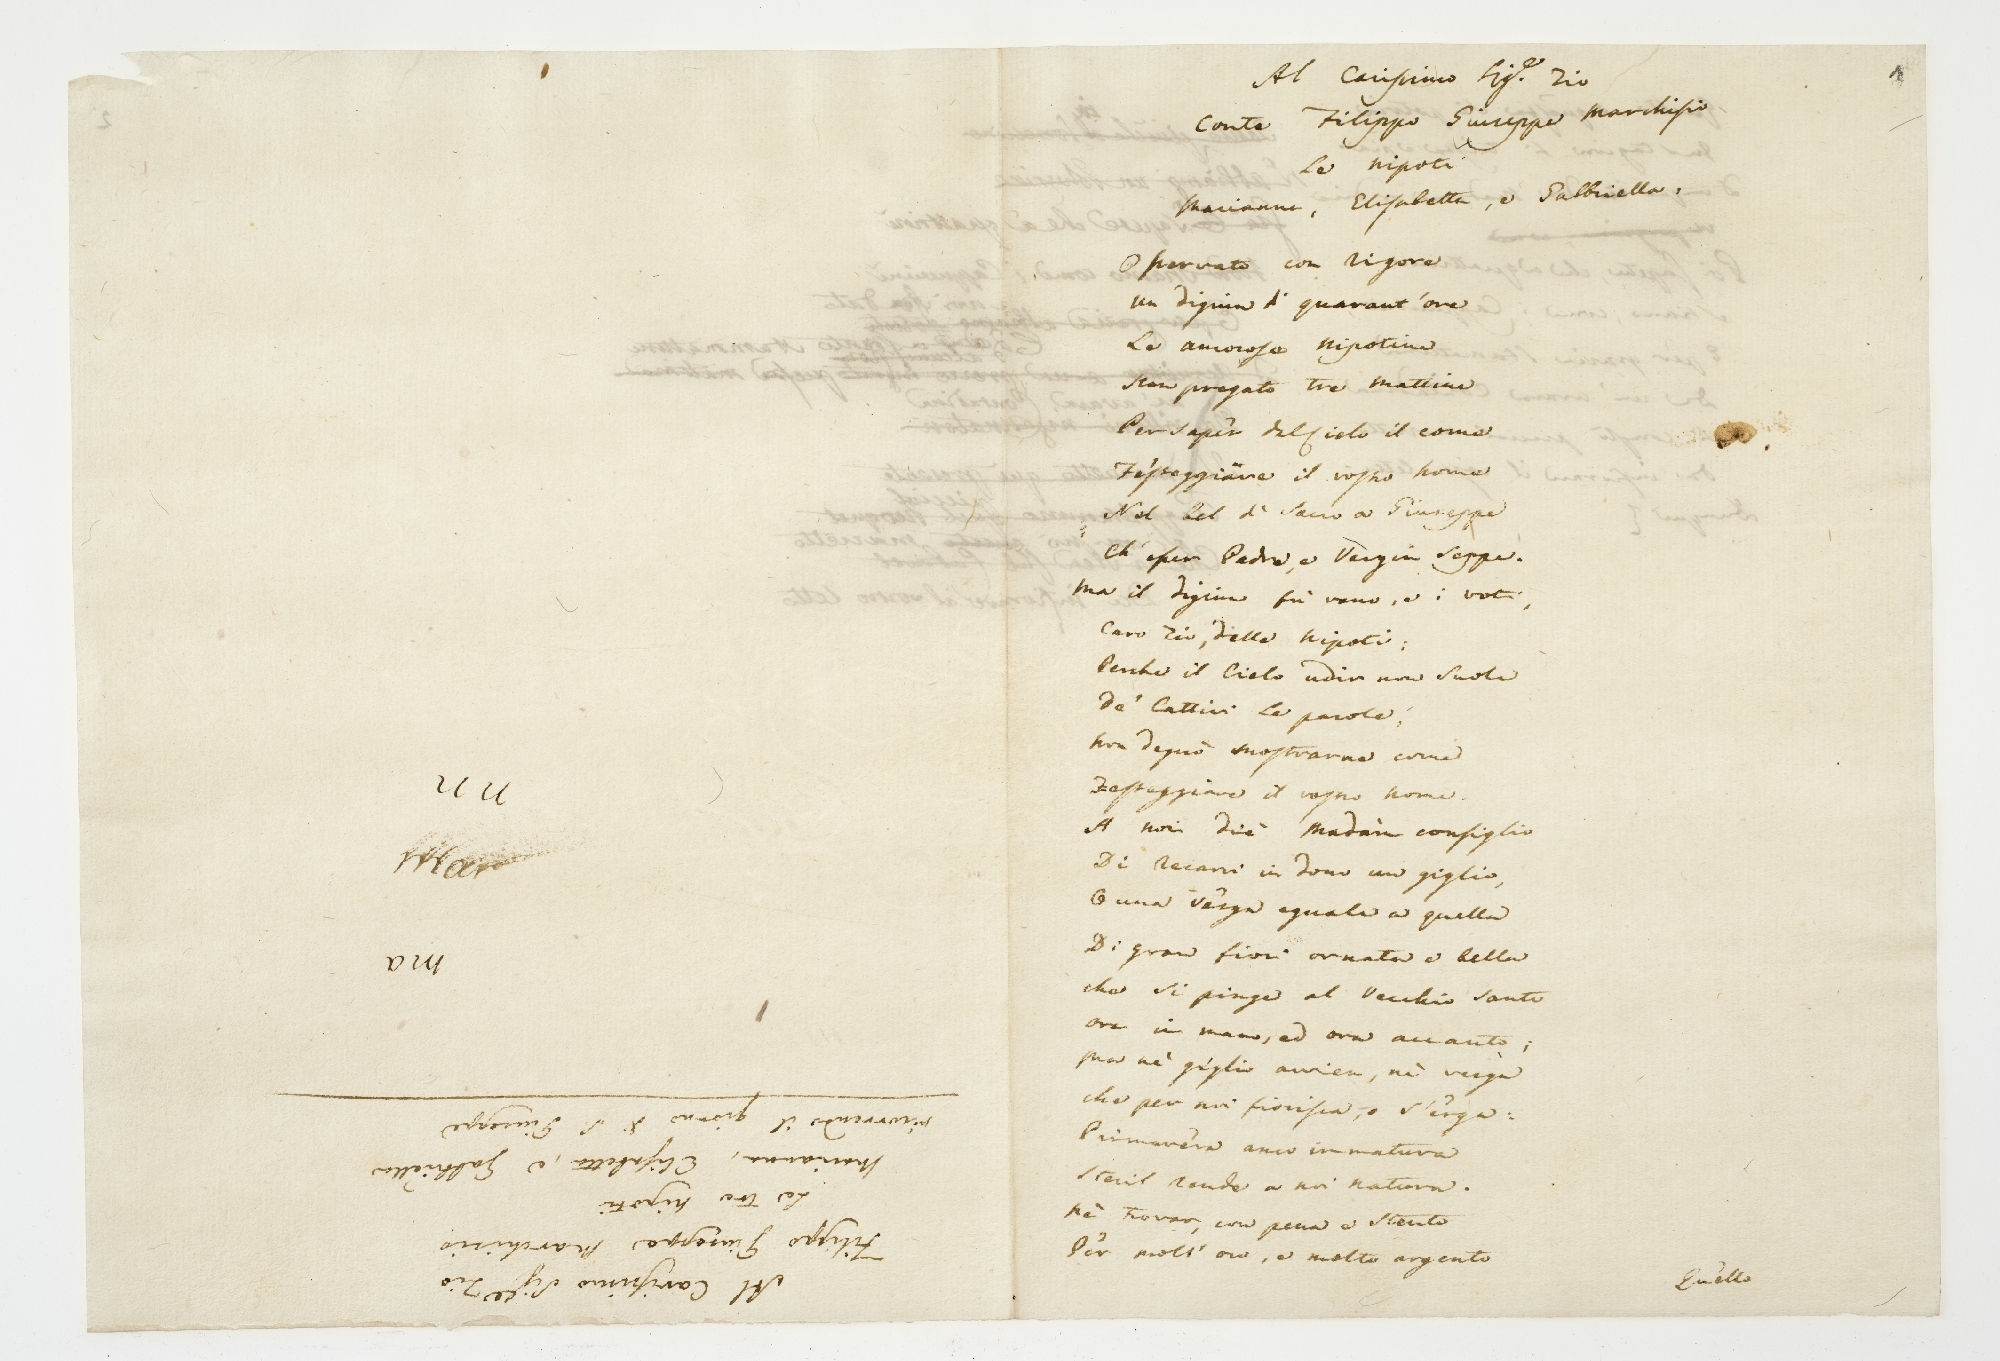 Al Carissimo Sig.re Zio
Conte Filippo Giuseppe Marchisio
Le Nipoti
Marianna, Elisabetta, e Gabbriella.
Osservato con rigore
un digiun di quarant'ore
Le amorose Nipotine
Han pregato tre mattine
Per saper dal Cielo il come
Festeggiare il vostro Nome
Nel bel dì Sacro a Giuseppe
Ch' esser Padre, e Vergin seppe.
Ma il digiuno fù vano, e i voti,
Caro Zio, delle Nipoti:
Perche il Cielo udir non suole
De' Cattivi Le parole;
Non degnò mostrarne come
Festeggiare il vostro Nome.
A noi diè Madam consiglio
Di recarvi in dono un giglio,
O una verga eguale a quella
Di gran fiori ornata e bella
che si pinge al Vecchio Santo
ora in mano, ed ora accanto;
Ma nè giglio avvien, nè verga
che per noi fiorisca, o s'erga:
Primavera anco immatura
Steril rende a noi natura.
Nè trovar, con pena e stento
Per molt' oro, e molto argento
Quello
1
2
Al Carissimo Sig.re Zio
Filippo Giuseppe Marchisio
Le tre Nipoti
Marianna, Elisabetta, e Gabbriella
ricorrendo il giorno di S. Giuseppe
Ma
nn